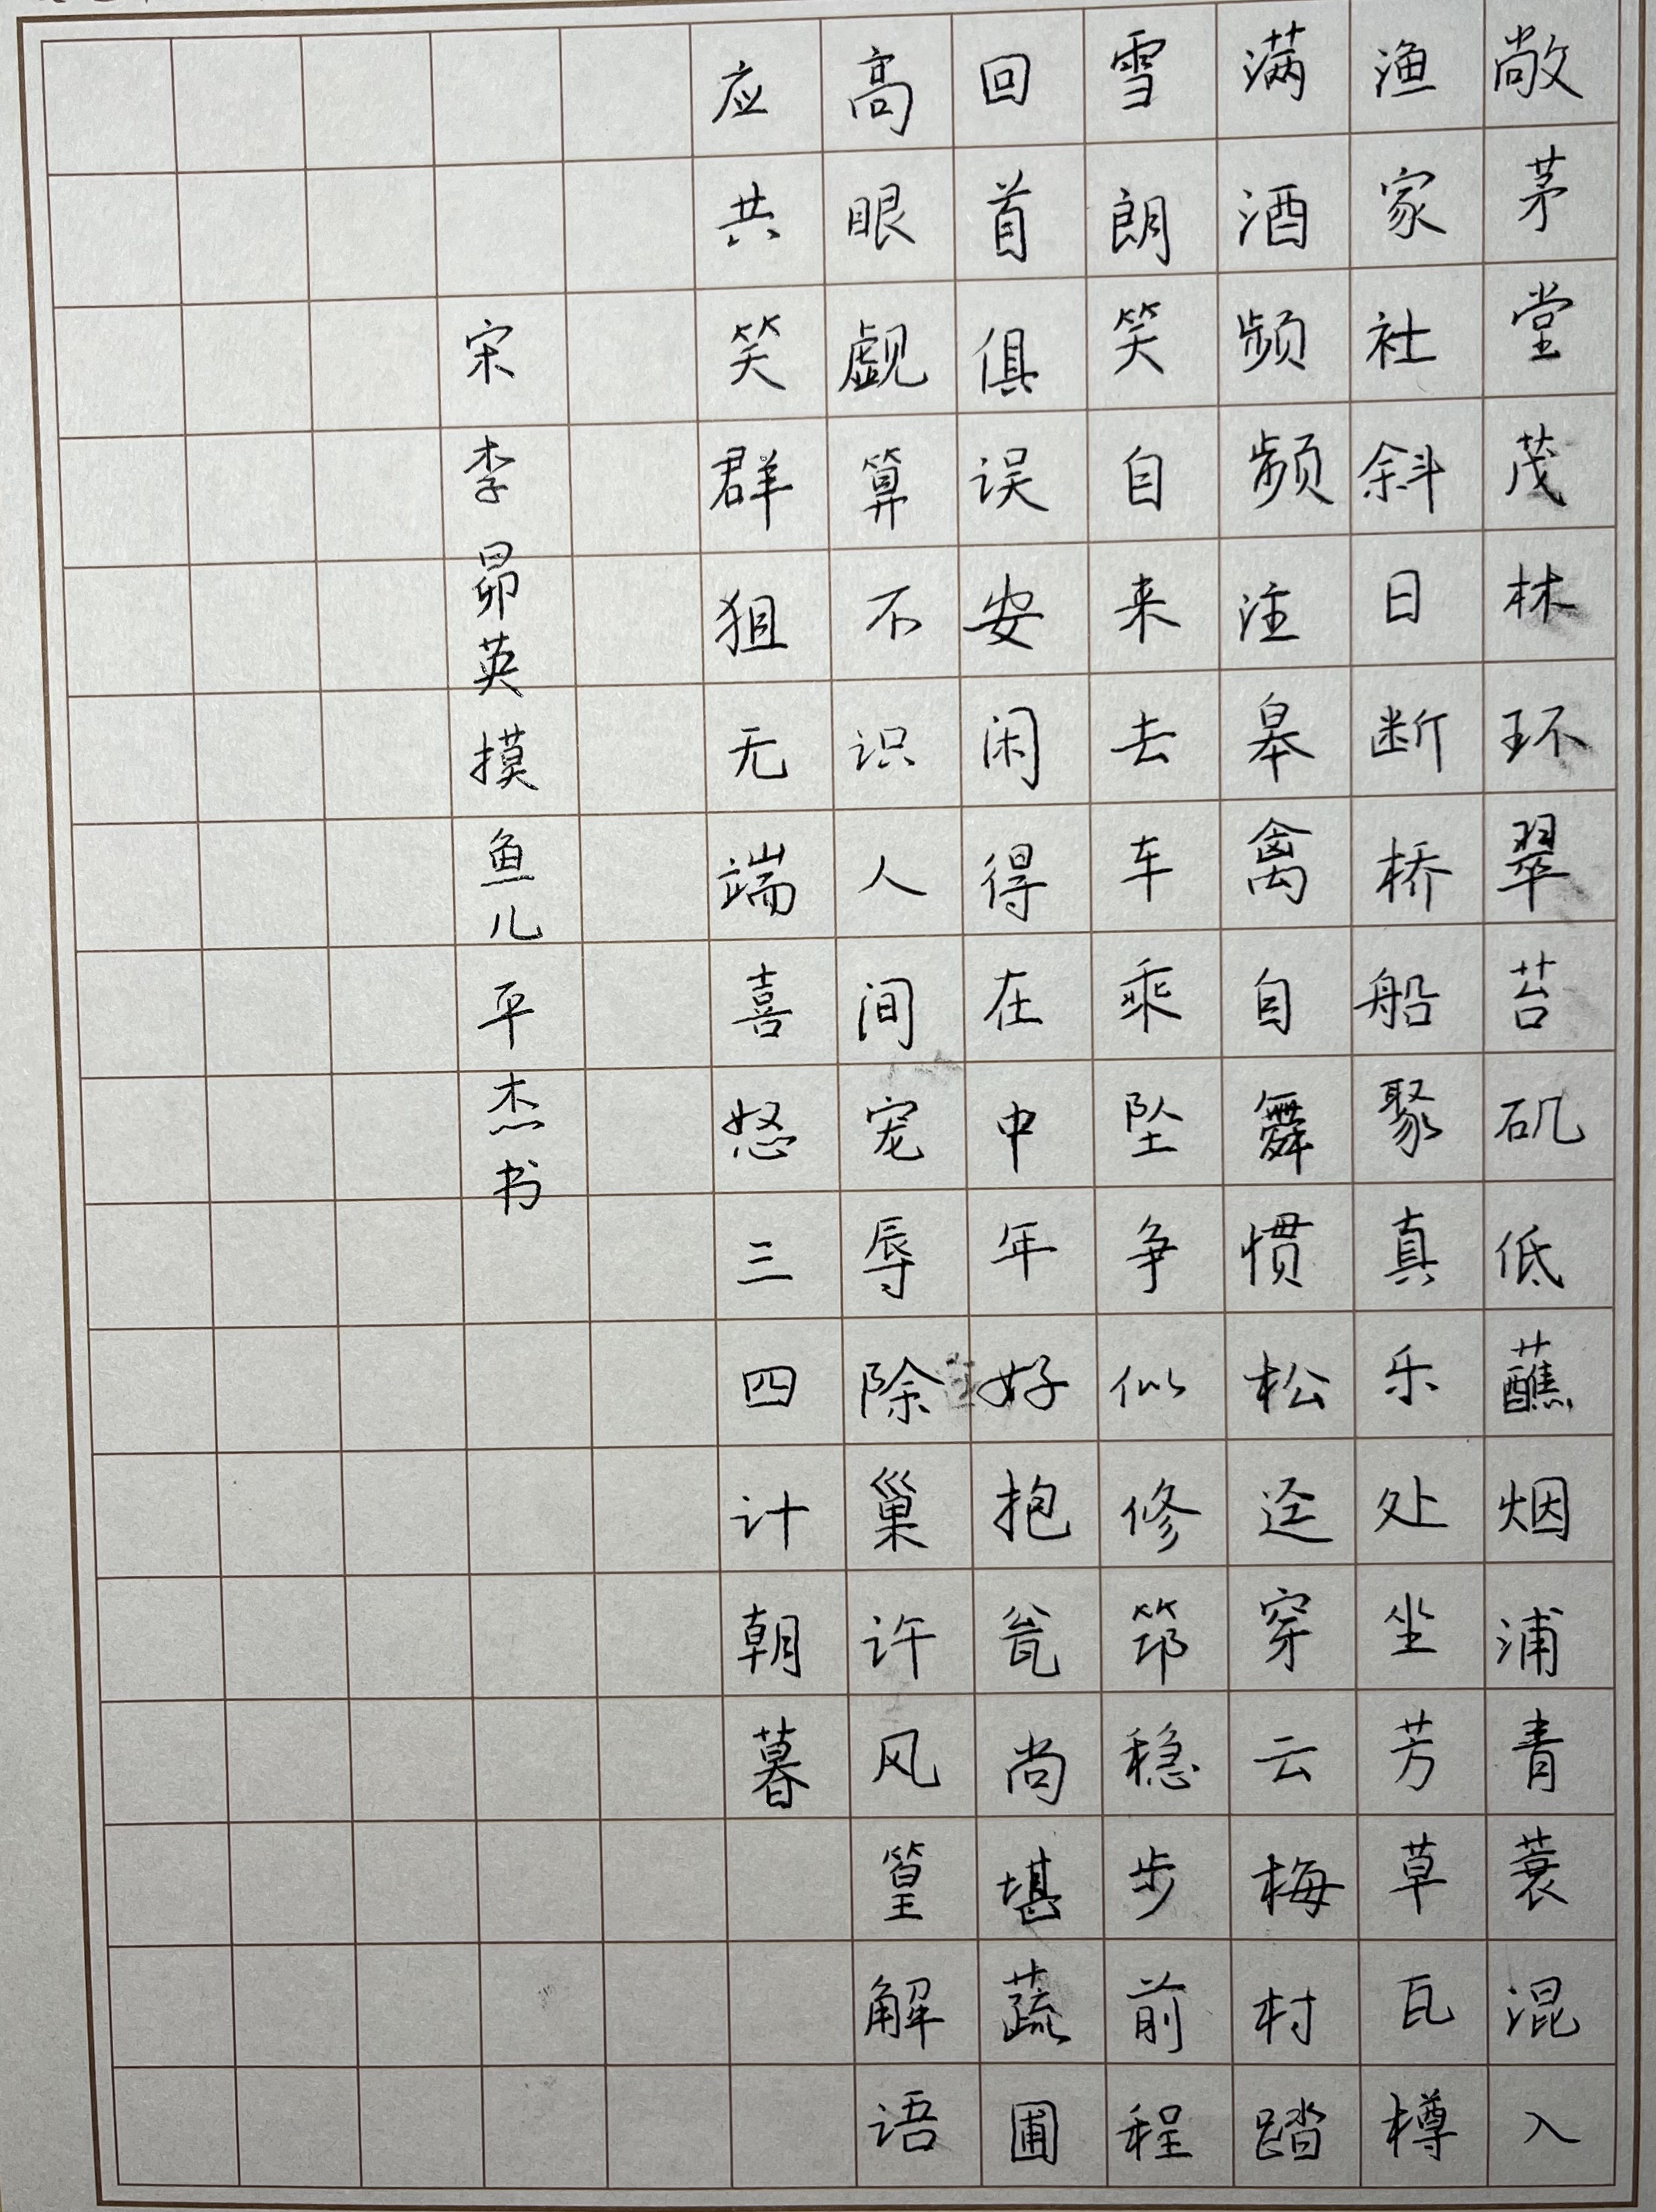 敞茅堂茂林环翠苔矶低蘸烟浦青蓑混入
渔家社斜日断桥船聚真乐处坐芳草瓦樽
满酒频频注皋禽自舞惯松迳穿云梅村踏
雪朗笑自来去车乘坠争似修筇稳步前程
回首俱误安闲得在中年好抱瓮尚堪蔬圃
高眼觑算不识人间宠辱除巢许风篁解语
应共笑群狙无端喜怒三四计朝暮
宋李昴英摸鱼儿平杰书